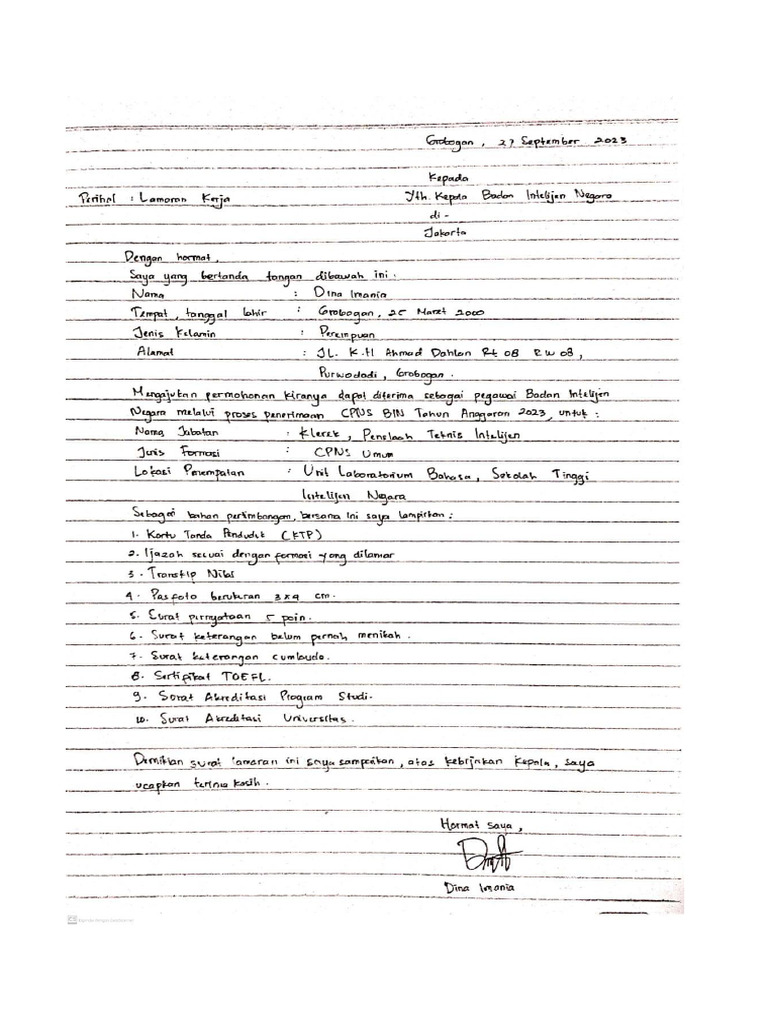 Grobogan, 27 September 2023
Kepada
Perihal : Lamaran Kerja Yth. Kepala Badan Intelijen Negara
di -
Jakarta
Dengan hormat,
Saya yang bertanda tangan dibawah ini :
Nama : Dina Imania
Tempat, tanggal lahir : Grobogan, 25 Maret 2000
Jenis Kelamin : Perempuan
Alamat : JL. K.H Ahmad Dahlan Rt 08 RW 08,
Purwodadi, Grobogan.
Mengajukan permohonan kiranya dapat diterima sebagai pegawai Badan Intelijen
Negara melalui proses penerimaan CPNS BIN Tahun Anggaran 2023, untuk :
Nama Jabatan : Klerek, Penelaah Teknis Intelijen
Jenis Formasi : CPNS Umum
Lokasi Penempatan : Unit Laboratorium Bahasa, Sekolah Tinggi
Intelijen Negara
Sebagai bahan pertimbangan, bersama ini saya lampirkan :
1. Kartu Tanda Penduduk (KTP)
2. Ijazah sesuai dengan formasi yang dilamar
3. Transkip Nilai
4. Pasfoto berukuran 3x4 cm.
5. Surat pernyataan 5 poin.
6. Surat keterangan belum pernah menikah.
7. Surat keterangan cumlaude.
8. Sertifikat TOEFL.
9. Surat Akreditasi Program Studi.
10. Surat Akreditasi Universitas.
Demikian surat lamaran ini saya sampaikan, atas kebijakan Kepala, saya
ucapkan terima kasih.
Hormat saya,
Dina Imania
CS